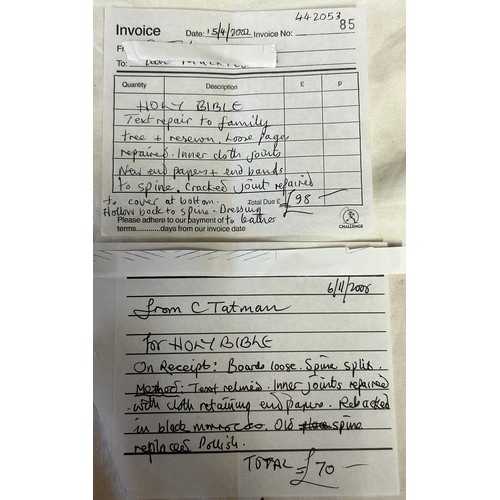 442053
Invoice Date: 15/4/2002 Invoice No: 85
To:
Quantity Description £ p
HOLY BIBLE
Text repair to family
tree + resewn. Loose page
repaired. Inner cloth joints
New end papers + end bands
to spine. Cracked joint repaired
to cover at bottom. Total Due £ £98 —
Hollow back to spine. Dressing
Please adhere to our payment of to leather
terms...........days from our invoice date
CHALLENGE
6/11/2006
from C Tatman
for HOLY BIBLE
On Receipt: Boards loose. Spine split.
Method: Text relined. Inner joints repaired
with cloth retaining end papers. Rebacked
in black morrocco. Old spine
replaced. Polish.
TOTAL = £70 —